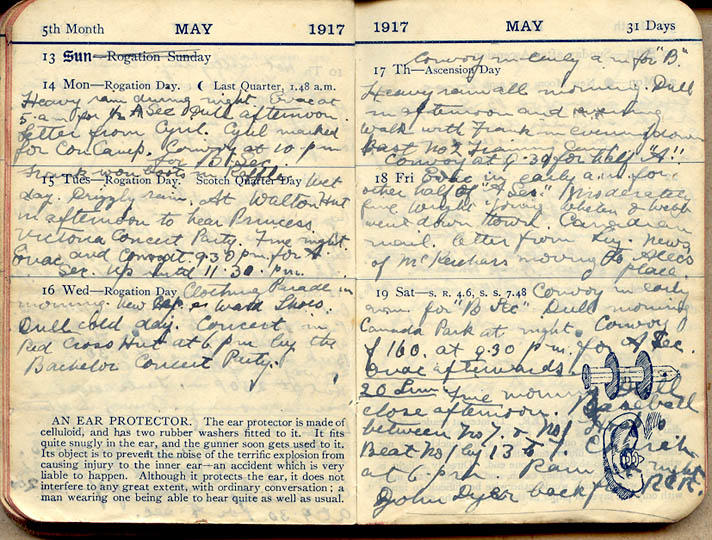 5th Month MAY 1917
13 Sun—Rogation Sunday
14 Mon—Rogation Day. ( Last Quarter, 1.48 a.m.
Heavy rain during night. Evac at
5 a.m. for A Sec Dull afternoon
letter from Cyril. Cyril marked
for Con Camp. Convoy at 10 pm
for D Sec.
15 Tues—Rogation Day. Scotch Quarter Day Wet
day. Drizzly rain. At Walton Hut
in afternoon to hear Princess
Victoria Concert Party. Fine night.
Evac and Convoy 9.30 p.m. for A
Sec. Up until 11.30 p.m.
16 Wed—Rogation Day Clothing Parade in
morning. New cap & Shoes.
Dull cold day. Concert in
Red Cross Hut at 6 pm by the
Bachelor Concert Party.
AN EAR PROTECTOR. The ear protector is made of
celluloid, and has two rubber washers fitted to it. It fits
quite snugly in the ear, and the gunner soon gets used to it.
Its object is to prevent the noise of the terrific explosion from
causing injury to the inner ear—an accident which is very
liable to happen. Although it protects the ear, it does not
interfere to any great extent, with ordinary conversation ; a
man wearing one being able to hear quite as well as usual.
1917 MAY 31 Days
Convoy in early a.m for "B".
17 Th—Ascension Day
Heavy rain all morning. Dull
in afternoon and evening
Walk with Frank in evening down
Past No 2 Training Camp
Convoy at 9.30 for half "A"!!
18 Fri Evac in early a.m. for
other half of "A Sec" Moderately
fine Wright & Webb
went down town. Canadian
mail. letter from News
of moving to
place.
19 Sat—S. R. 4.6, S. S. 7.48 Convoy in early
a.m. for "B Dull morning
Canada Park at night. Convoy
of 160. at 9.30 p.m. for A Sec.
Evac afterwards
20 Sun Fine morning Dull
close afternoon. Baseball
between No 7. & No 1
Beat No 1 by 13 to 7. Church
at 6 p.m. Rain night
John Dyer back